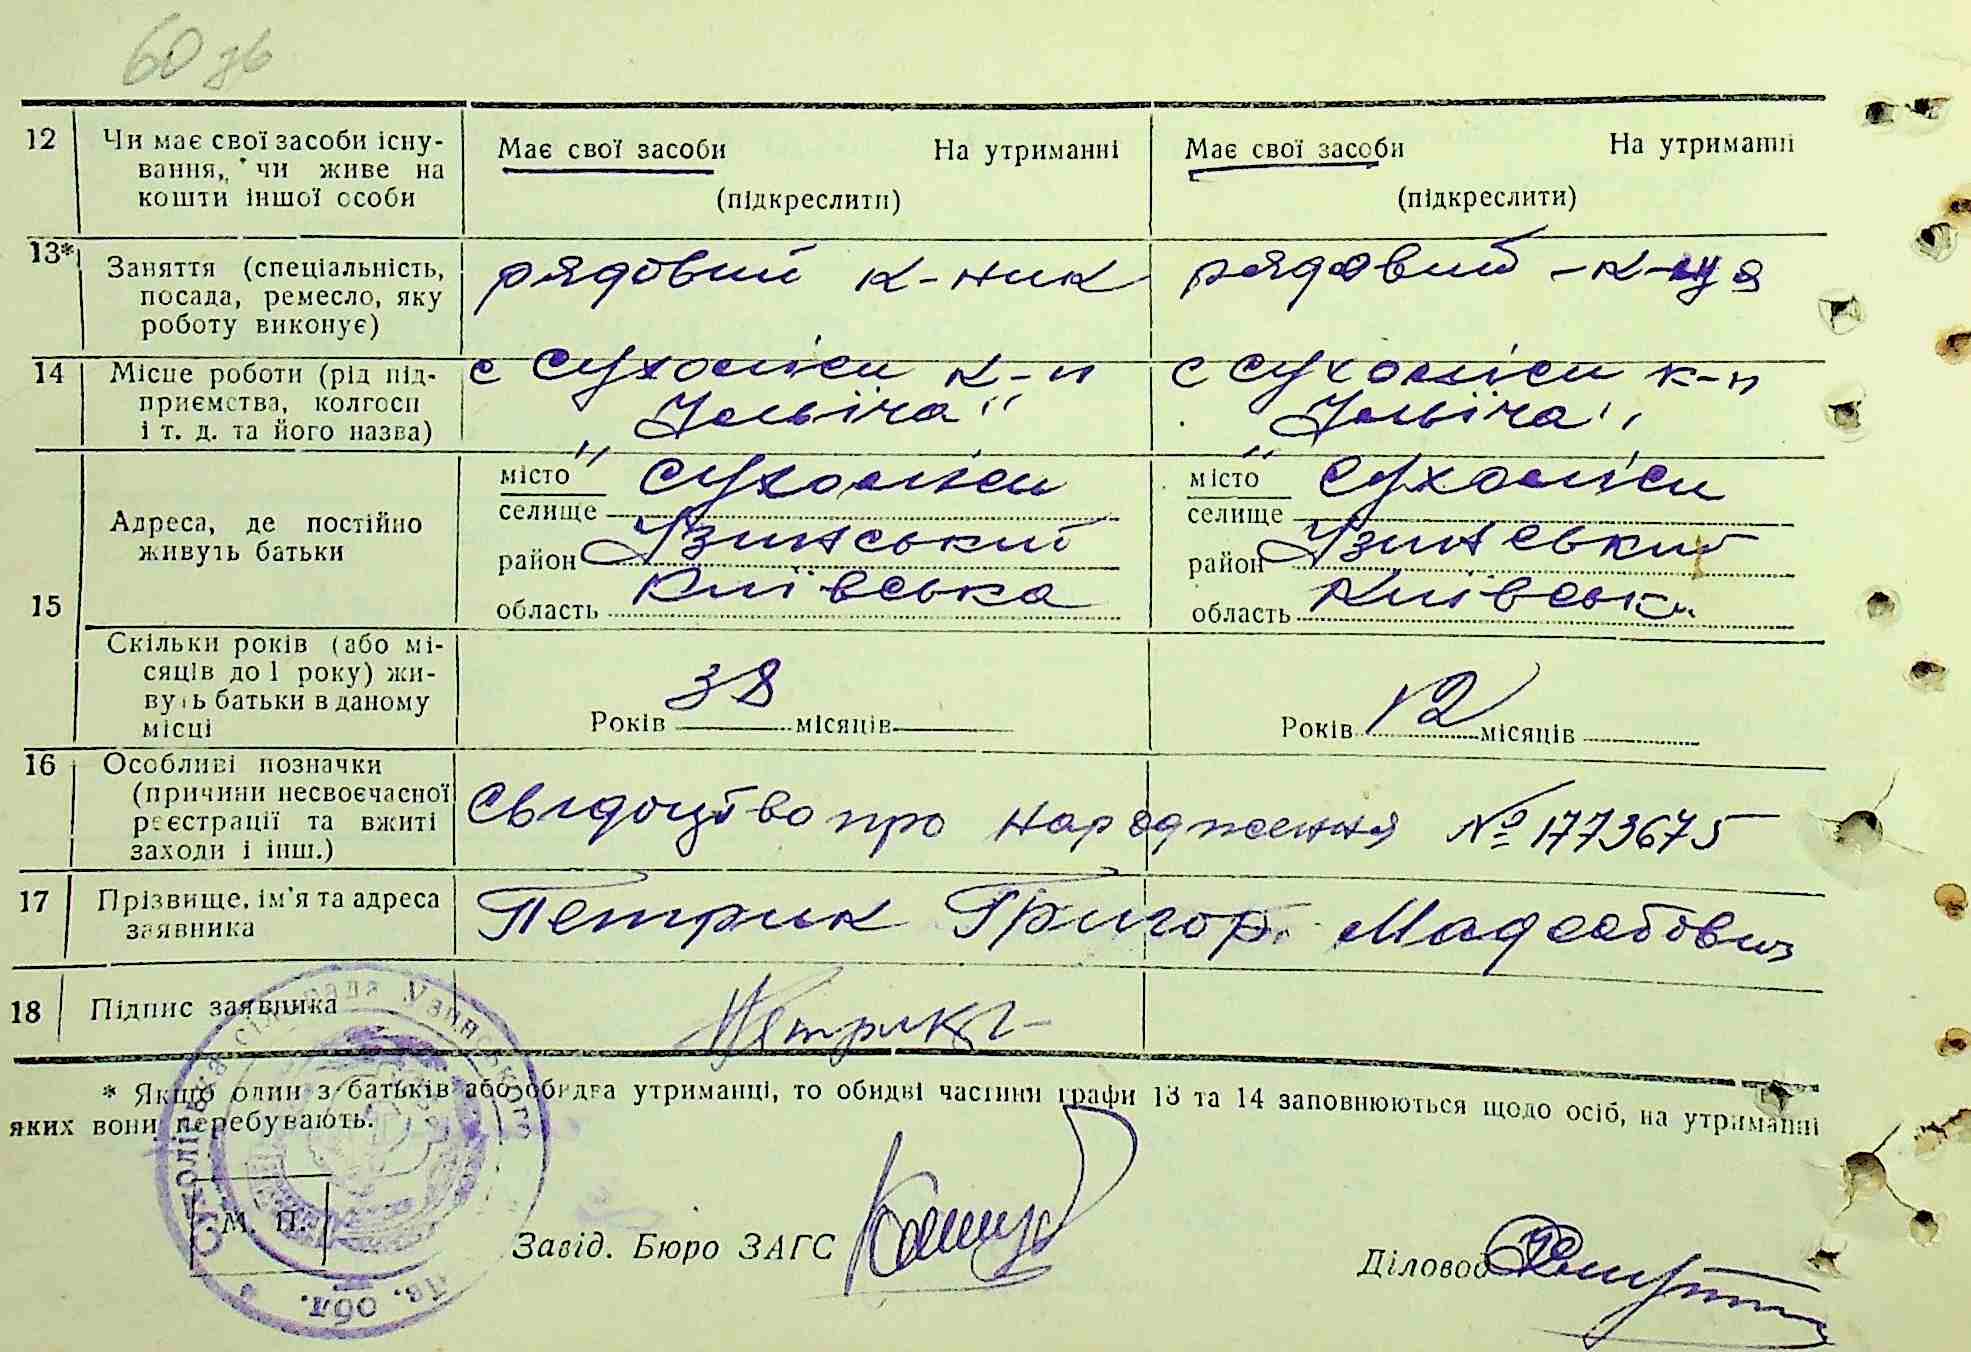 60 зв
12 Чи має свої засоби існу- Має свої засоби На утриманні Має свої засоби На утриманні
вання, чи живе на
кошти іншої особи (підкреслити) (підкреслити)
13* Заняття (спеціальність, рядовий к-ник рядовий - к-ця
посада, ремесло, яку
роботу виконує)
14 Місце роботи (рід під- с Сухоліси к-п с Сухоліси к-п
приємства, колгосп "Ільіча" "Ільіча"
і т. д. та його назва)
15 Адреса, де постійно живуть батьки
місто Сухоліси місто Сухоліси
селище селище
район Узинський район Узинський
область Київська область Київськ
Скільки років (або мі-
сяців до 1 року) жи-
вуть батьки в даному
місці
Років 38 місяців Років 12 місяців
16 Особливі позначки
(причини несвоєчасної
реєстрації та вжиті
заходи і інш.)
Свідоцтво про народження № 1773675
17 Прізвище, ім'я та адреса
заявника
Петрик Григор.
18 Підпис заявника Петрик Г
* Якщо один з батьків або обидва утриманці, то обидві частини графи 13 та 14 заповнюються щодо осіб, на утриманні
яких вони перебувають.
М. П.
Завід. Бюро ЗАГС
Діловод
сільрада Узинського
обл.